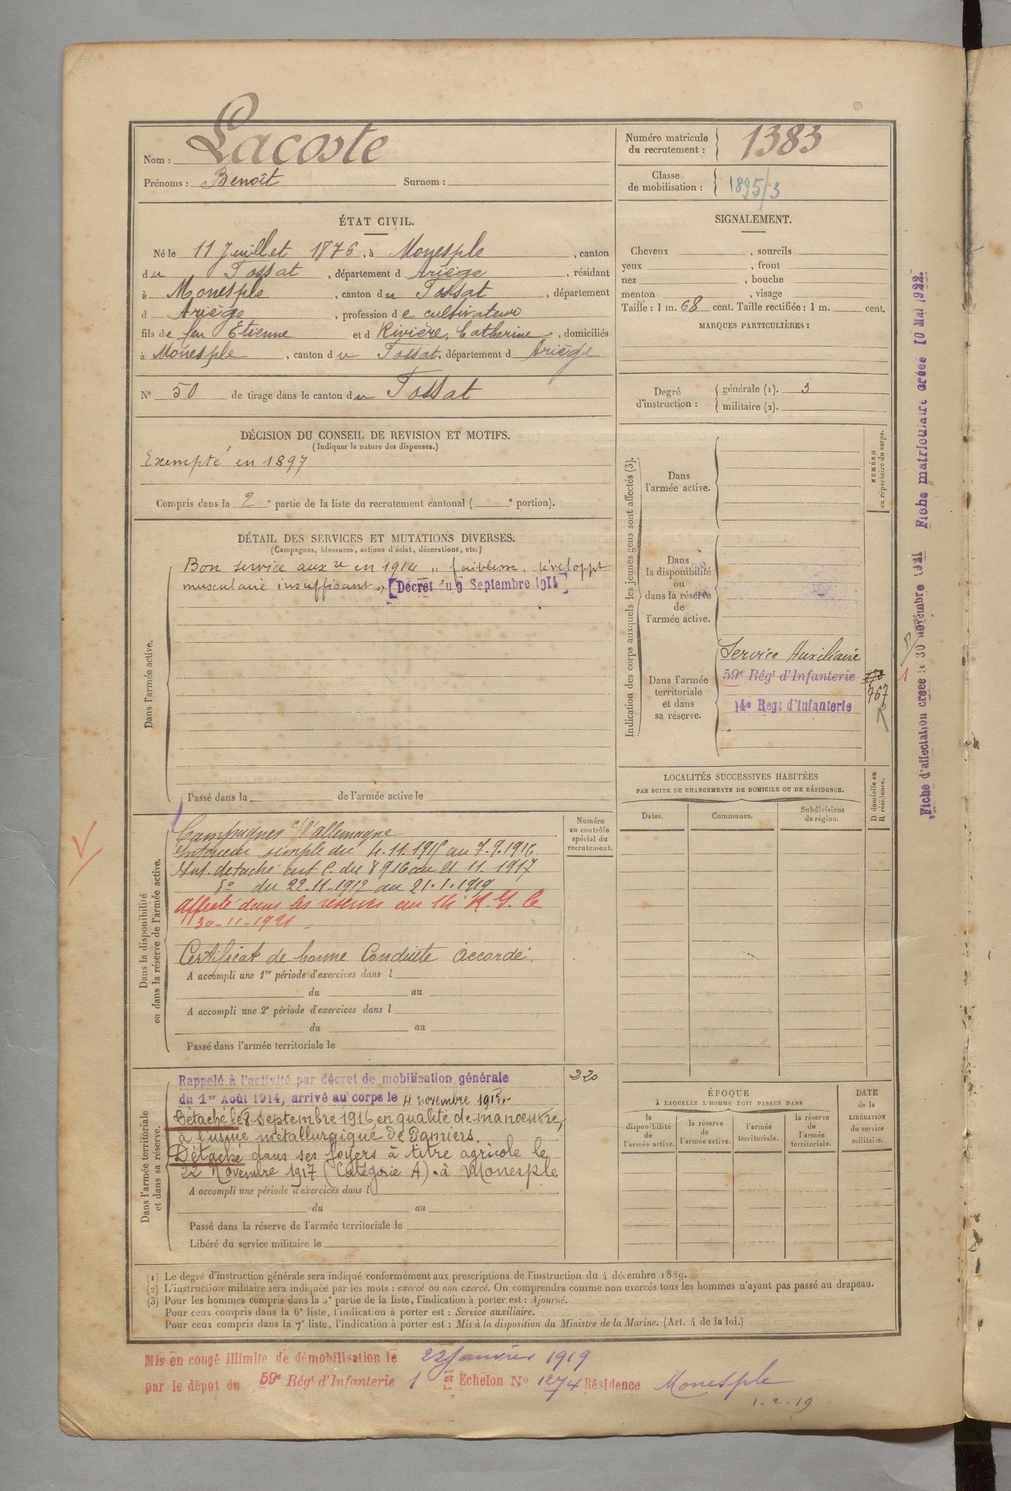 Nom : Lacoste
Prénoms : Benoît Surnom :
Numéro matricule du recrutement : 1383
Classe de mobilisation : 1895/3
ÉTAT CIVIL.
Né le 11 Juillet 1876, à Monesple, canton
du Fossat, département d Ariège, résidant
à Monesple, canton du Fossat, département
d Ariège, profession de cultivateur
fils de feu Etienne et d Rivière, Catherine, domiciliés
à Monesple, canton du Fossat, département d Ariège
N° 50 de tirage dans le canton du Fossat
SIGNALEMENT.
Cheveux , sourcils
yeux , front
nez , bouche
menton , visage
Taille : 1 m. 68 cent. Taille rectifiée : 1 m. cent.
MARQUES PARTICULIÈRES :
Degré d'instruction : générale (1). 3
militaire (2).
DÉCISION DU CONSEIL DE REVISION ET MOTIFS.
(Indiquer la nature des dispenses.)
Exempté en 1897
Compris dans la 2e partie de la liste du recrutement cantonal ( e portion).
DÉTAIL DES SERVICES ET MUTATIONS DIVERSES.
(Campagnes, blessures, actions d'éclat, décorations, etc.)
Dans l'armée active.
Bon service auxre en 1914 " faiblesse, développt
musculaire insuffisant " [Décret du 9 Septembre 1914]
Passé dans la de l'armée active le
Indication des corps auxquels les jeunes gens sont affectés (3).
NUMÉRO au répertoire du corps.
Dans l'armée active.
Dans la disponibilité ou dans la réserve de l'armée active.
Dans l'armée territoriale et dans sa réserve.
Service Auxiliaire
59e Régt d'Infanterie
14e Regt d'Infanterie
767
LOCALITÉS SUCCESSIVES HABITÉES
PAR SUITE DE CHANGEMENTS DE DOMICILE OU DE RÉSIDENCE.
Dates. Communes. Subdivisions de région. D. domicile ou R. résidence.
Dans la disponibilité ou dans la réserve de l'armée active.
Numéro au contrôle spécial du recrutement.
Campagnes Ct l'allemagne
Intérieur simple du 4.11.1915 au 7.9.1916
Int. détaché du 8 9 16 au 21.11.1917
do du 22.11.1917 au 21.1.1919
Affecté dans les réserves au 14e R.I. le
30-11-1921
Certificat de bonne Conduite accordé.
A accompli une 1re période d'exercices dans l
du au
A accompli une 2e période d'exercices dans l
du au
Passé dans l'armée territoriale le
Dans l'armée territoriale et dans sa réserve.
220
Rappelé à l'activité par décret de mobilisation générale
du 1er Août 1914, arrivé au corps le 4 novembre 1915.
Détaché le 8 septembre 1916 en qualité de manoeuvre,
à l'usine métallurgique de Pamiers.
Détaché dans ses foyers à titre agricole le
22 Novembre 1917 (Catégorie A) à Monesple
A accompli une période d'exercices dans l
du au
Passé dans la réserve de l'armée territoriale le
Libéré du service militaire le
ÉPOQUE
À LAQUELLE L'HOMME DOIT PASSER DANS
la disponibilité de l'armée active. la réserve de l'armée active. l'armée territoriale. la réserve de l'armée territoriale.
DATE de la LIBÉRATION du service militaire.
(1) Le degré d'instruction générale sera indiqué conformément aux prescriptions de l'instruction du 4 décembre 1889.
(2) L'instruction militaire sera indiquée par les mots : exercé ou non exercé. On comprendra comme non exercés tous les hommes n'ayant pas passé au drapeau.
(3) Pour les hommes compris dans la 5e partie de la liste, l'indication à porter est : Ajourné.
Pour ceux compris dans la 6e liste, l'indication à porter est : Service auxiliaire.
Pour ceux compris dans la 7e liste, l'indication à porter est : Mis à la disposition du Ministre de la Marine. (Art. 4 de la loi.)
Mis en congé illimité de démobilisation le 22 Janvier 1919
par le dépôt du 59e Régt d'Infanterie 1er Echelon No 1274 Résidence Monesple
1-2-19
Fiche d'affectation créée le 30 novembre 1921 Fiche matriculaire créée 10 Mai 1922.